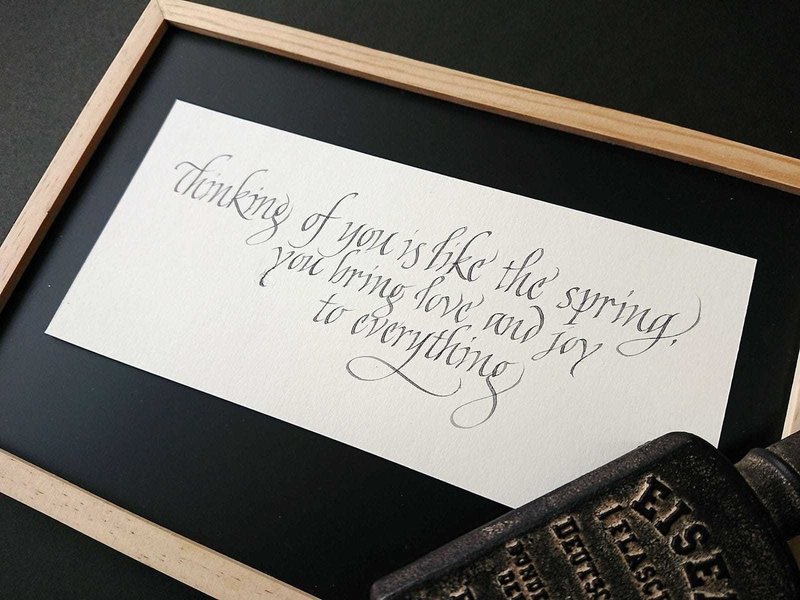 Thinking of you is like the spring,
you bring love and joy
to everything
DEUTSC